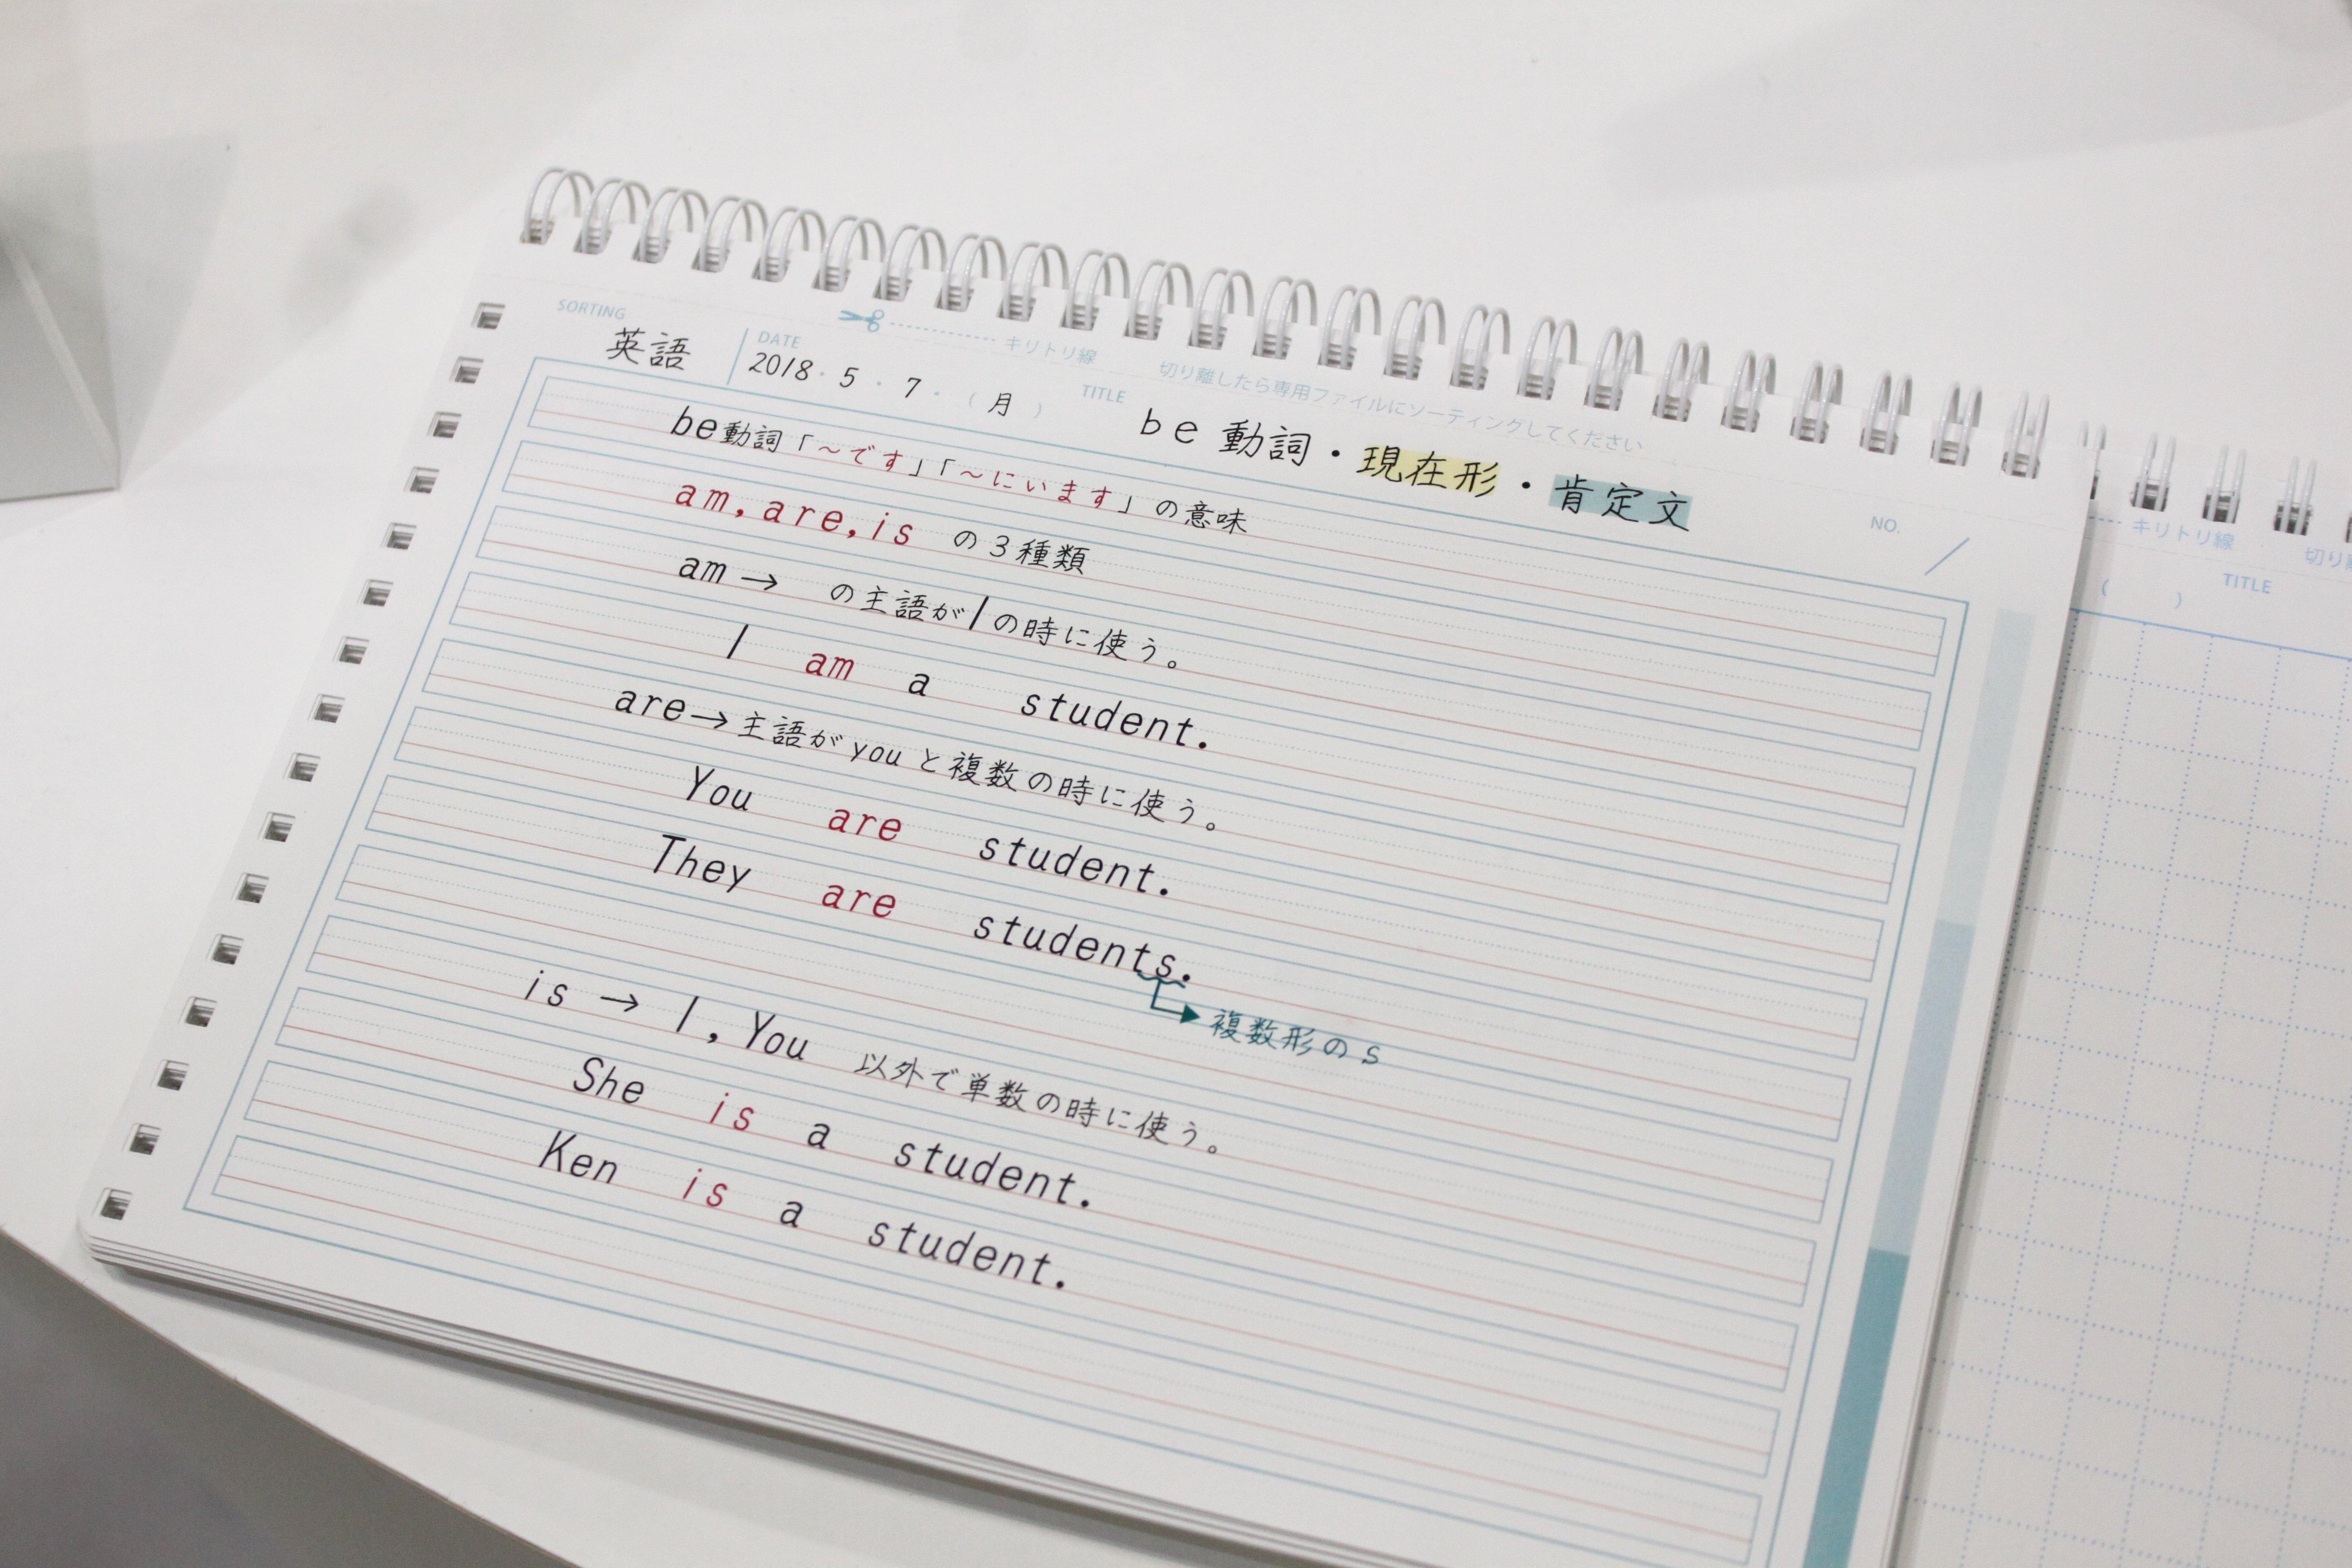 SORTING 英語
DATE 2018・5・7・(月)
キリトリ線 切り離したら専用ファイルにソーティングしてください
TITLE be 動詞・現在形・肯定文
NO.
be動詞「～です」「～にいます」の意味
am,are,is の3種類
am→ の主語がIの時に使う。
I am a student.
are→主語がyouと複数の時に使う。
You are student.
They are students.
複数形のs
is → I,You 以外で単数の時に使う。
She is a student.
Ken is a student.
キリトリ線 切り
( ) TITLE